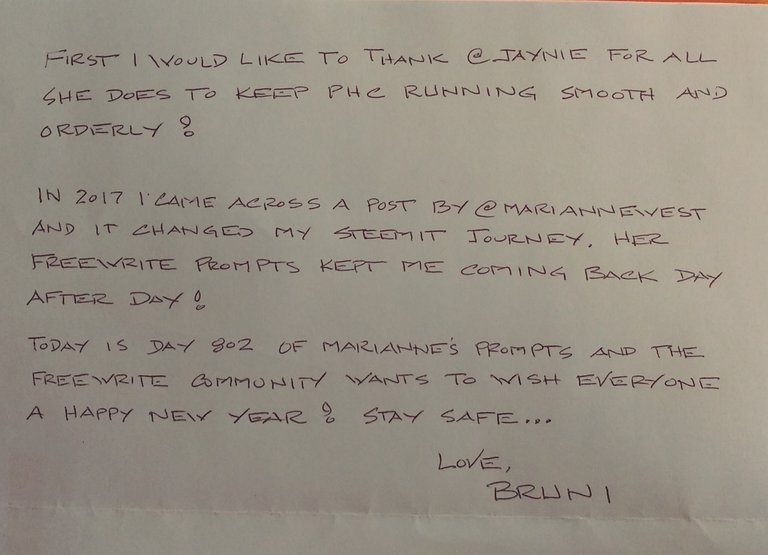 FIRST I WOULD LIKE TO THANK @JAYNIE FOR ALL
SHE DOES TO KEEP PHC RUNNING SMOOTH AND
ORDERLY!
IN 2017 I CAME ACROSS A POST BY @MARIANNEWEST
AND IT CHANGED MY STEEMIT JOURNEY. HER
FREEWRITE PROMPTS KEPT ME COMING BACK DAY
AFTER DAY!
TODAY IS DAY 802 OF MARIANNE'S PROMPTS AND THE
FREEWRITE COMMUNITY WANTS TO WISH EVERYONE
A HAPPY NEW YEAR! STAY SAFE...
LOVE,
BRUNI